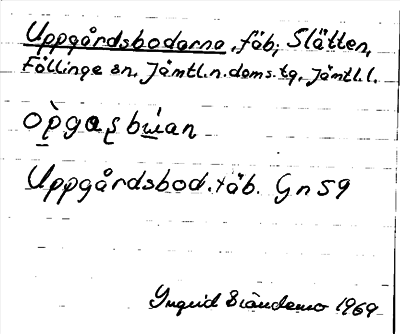 Uppgårdsbodarna, fäb, Slätten,
Föllinge sn, Jämtl.n.doms.tg, Jämtl.l.
Uppgårdsbod. fäb. Gn 59
Ingrid 1969